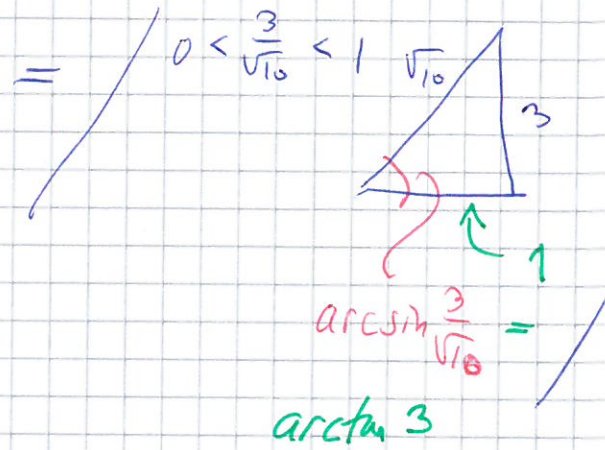 = / 0 < 3/√10 < 1
√10
3
1
arcsin 3/√10 = /
arctan 3